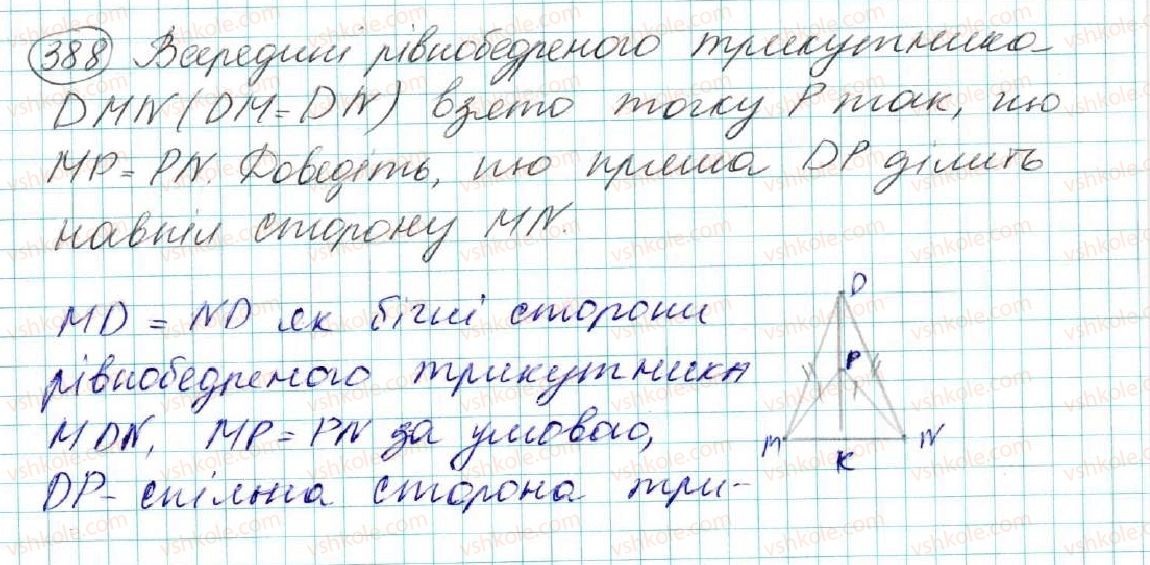 388 Всередині рівнобедреного трикутника
DMN (DM = DN) взято точку P так, що
MP = PN. Доведіть, що пряма DP ділить
навпіл сторону MN.
MD = ND як бічні сторони
рівнобедреного трикутника
MDN, MP = PN за умовою,
DP - спільна сторона три-
D
P
M
K
N
vshkole.com